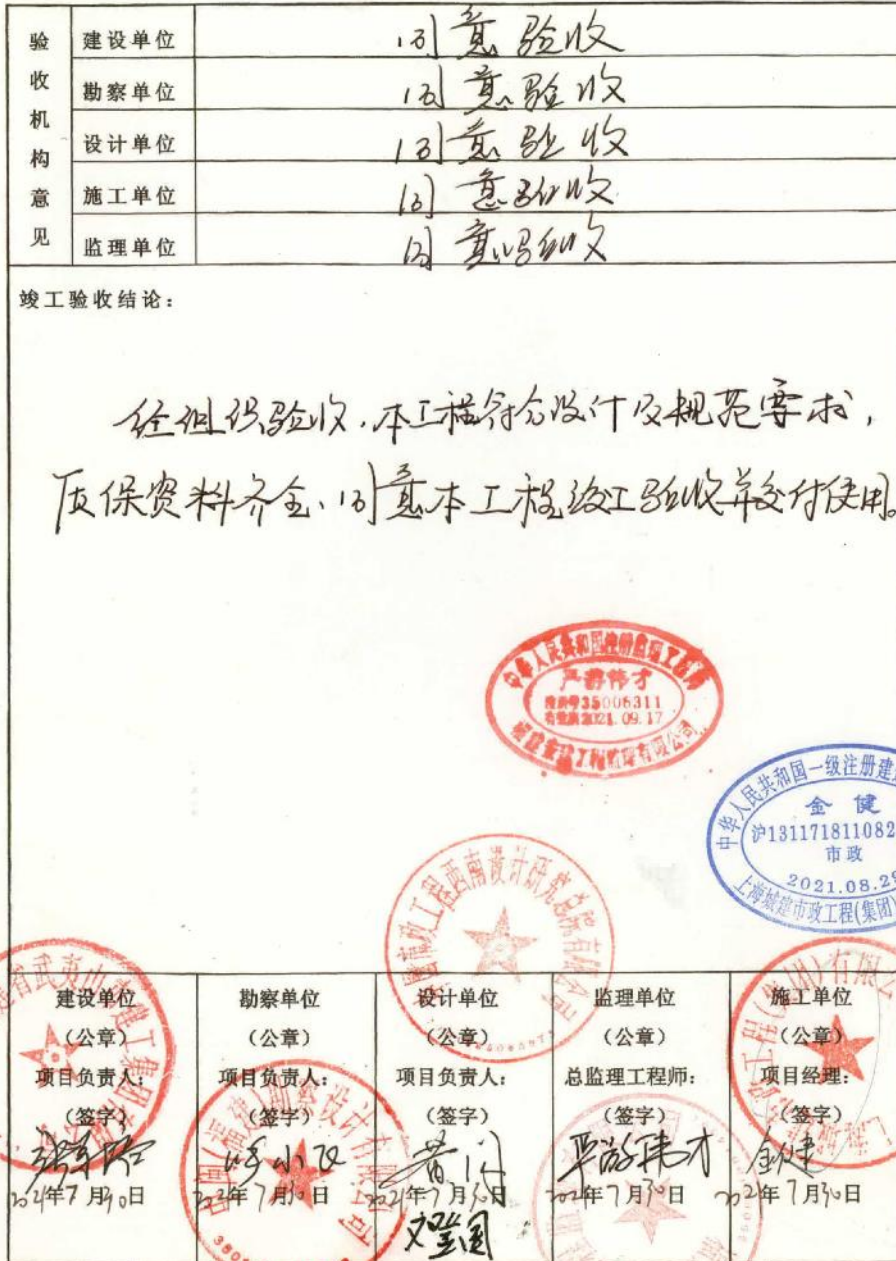 验收机构意见
建设单位 同意验收
勘察单位 同意验收
设计单位 同意验收
施工单位 同意验收
监理单位 同意验收
竣工验收结论：
经组织验收，本工程符合设计及规范要求，
质保资料齐全、同意本工程竣工验收并交付使用。
中华人民共和国注册监理工程师
严游伟才
注册号35006311
有效期2021.09.17
工程监理有限公司
中华人民共和国一级注册建
金健
沪131171811082
市政
2021.08.29
上海城建市政工程(集团)
市政工程西南设计研究总院有限公司
建设单位 勘察单位 设计单位 监理单位 施工单位
（公章） （公章） （公章） （公章） （公章）
项目负责人： 项目负责人： 项目负责人： 总监理工程师： 项目经理：
（签字） （签字） （签字） （签字） （签字）
严游伟才 金健
2021年7月30日 2021年7月30日 2021年7月30日 2021年7月30日 2021年7月30日